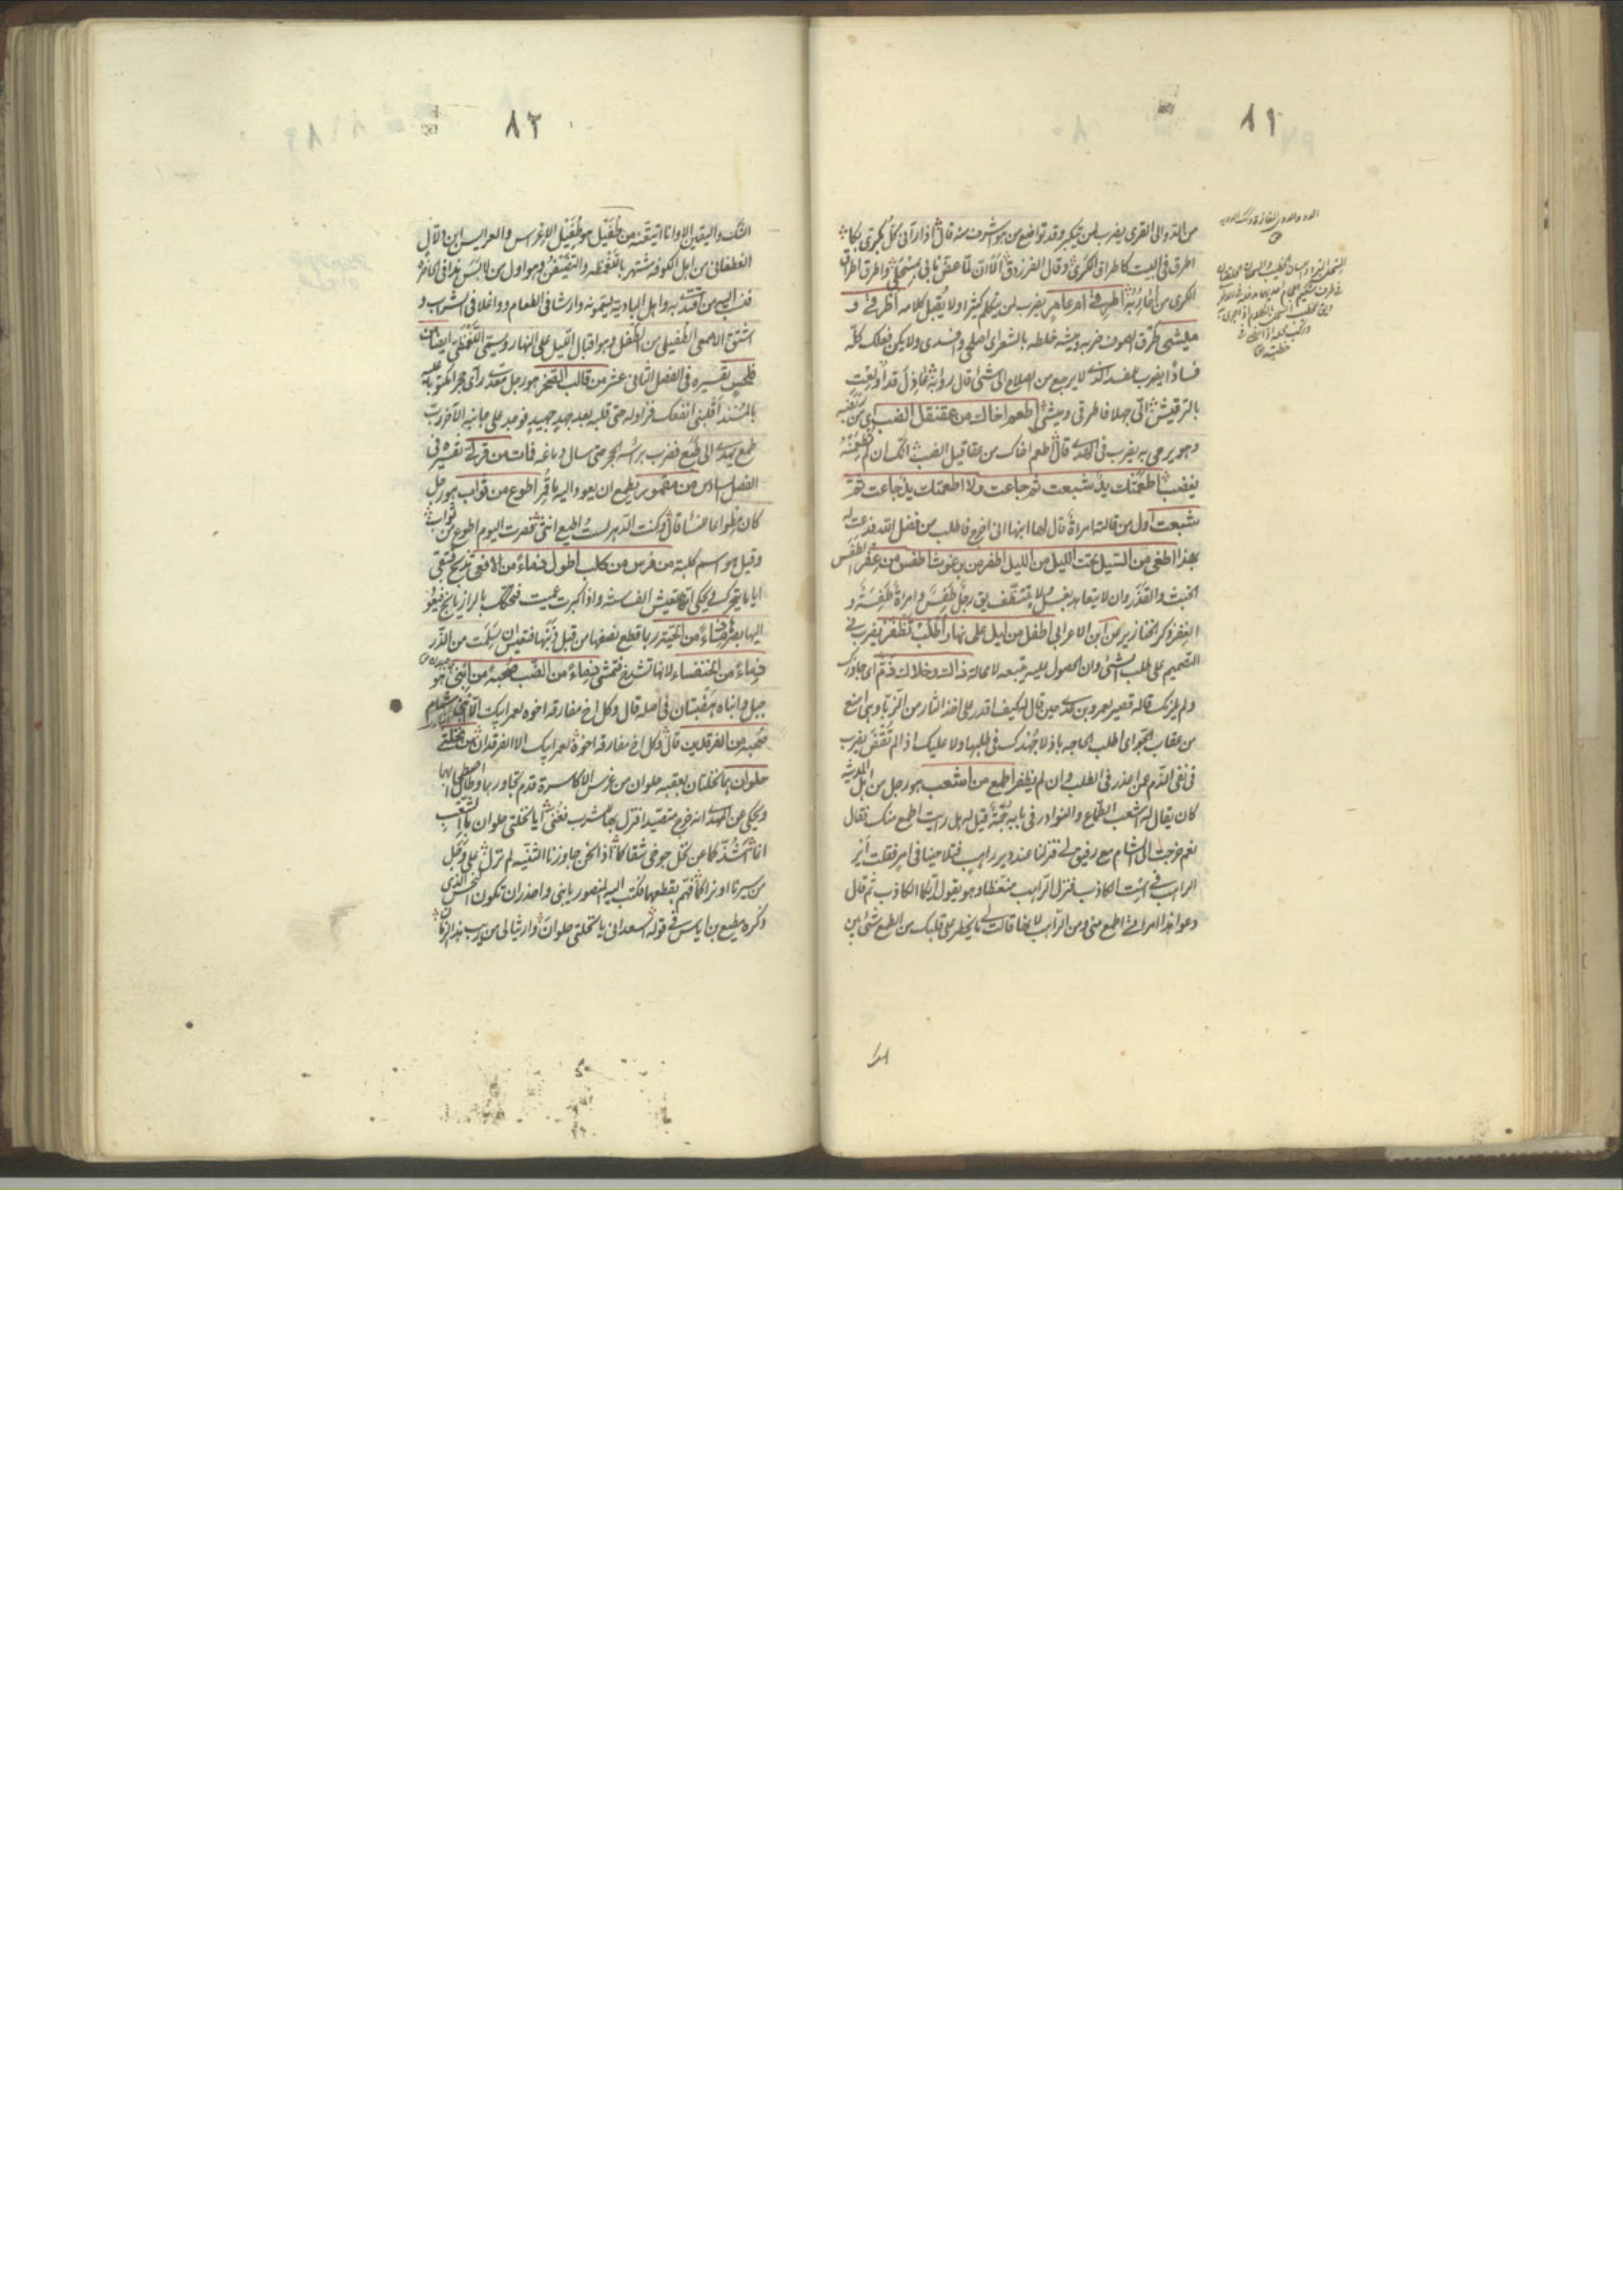 ٨١
من الدو الى القرى يضرب لمن يتكبر وقد تواضع من هو اشرف منه قال اذا رآنى كل بكرى بكا
اطرق فى البيت كاطراق الكرى وقال الفرزدق الان لما عض نابى بمسحلى واطرق اطراق
الكرى من احاربه اطرقى ام عامر يضرب لمن يتكلم كثيرا ولا يقبل كلامه اطرقى و
ميشى طرق الصوف ضربه وميشه خلطه بالشعر اى اصلحى وافسدى ولا يكن فعلك كله
فسادا يضرب للمفسد الذى لا يرجع من اصلاح الى شئ قال رؤبة عاذل قد اولعت
بالترقيش الى جهلا فاطرقى وميشى اطعم اخاك من عقنقل الضب اى من
وهو يرمى به يضرب فى قال اطعم اخاك من عقاقيل الضب انك ان لم تطعمنه
يغضب اطعمتك يد شبعت ثم جاعت ولا اطعمتك يد جاعت ثم
شبعت اول من قالته امراة قال لها ابنها انى اخرج فاطلب من فضل الله فدعت له
بهذا اطغى من السيل تحت الليل من الليل اطفر من برغوث اطفس من عفر الطفس
الخبث والقذر وان لا يتعاهد بغسل ولا يتنظف يق رجل طفس وامراة طفسة و
العفر ذكر الخنازير من ابن الاعرابى اطفل من ليل على نهار اطلب تظفر يضرب فى
التصميم على طلب الشئ وان الحصول ليس يتبعه لا محالة ذاك وخلاك ذم اى جاوزك
ولم يلزمك قاله قصير لعمرو بن عدى حين قال له كيف اقدر على اخذ الثار من الزبا وهى امنع
من عقاب الجو اى اطلب الحاجه باذلا جهدك فى طلبها ولا عليك اذا لم تقض يضرب
فى نفى الذم عمن اعذر فى الطلب وان لم يظفر اطمع من اشعب هو رجل من اهل المدينة
كان يقال له اشعب الطماع والنوادر فى بابه جمة قيل له هل رايت اطمع منك فقال
نعم خرجت الى الشام مع رفيق لى فنزلنا عند دير راهب فتلاحينا فى امر فقلت اير
الراهب فى است الكاذب فنزل الراهب منعظا وهو يقول ايكما الكاذب ثم قال
دعوا هذا امراتى اطمع منى ومن الراهب لانها قالت لى ما يخطر على قلبك من الطمع شئ بين
٨٢
الشك واليقين الا وانا اتيقنه من طفيل هو طفيل الاعراس والعرايس ابن دلال
الغطفانى من اهل الكوفه مشتهر بالتغطفر والتفتيش وهو اول من لابس هذا فى عمره
فنسب اليه من اقتدى به واهل البادية يسمونه وارشا فى الطعام وواغلا فى الشراب و
اشتق الاصمعى الطفيلى من الطفل وهو اقبال الليل على النهار ويسمى اللغمظى ايضا من
فلحس تفسيره فى الفصل الثانى عشر من قالب الصخر هو رجل من معد راى حجرا مكتوبا عليه
بالمسند اقلبنى انفعك فزاوله حتى قلبه بعد جهد جهيد فوجد على جانبه الآخر رب
طمع يهدى الى طبع فضرب براسه الحجر حتى سال دماغه فمات من قرلى تفسيره فى
الفصل السادس من مقمور يطمع ان يعود اليه ما قمر اطوع من ثواب هو رجل
كان مطواعا قال وكنت الدهر لست اطيع انثى فصرت اليوم اطوع من ثواب
وقيل هو اسم كلبة من فرس من كلب اطول ذماء من الافعى تذبح فتبقى
اياما تتحرك ويحكى انها تعيش الف سنة واذا كبرت عميت فتحكك بالرازيانج فيعود
اليها بصرها ذماء من الحية ربما قطع نصفها من قبل ذنبها فتعيش ان سلمت من الذر
ذماء من الخنفساء لانها تشدخ فتمشى ذماء من الضب صحبة من ابنى شمام هو
جبل وابناه هضبتان فى اصله قال وكل اخ مفارقه اخوه لعمر ابيك الا ابنى شمام
صحبة من الفرقدين قال وكل اخ مفارقه اخوه لعمر ابيك الا الفرقدان من نخلتى
حلوان هما نخلتان بعقبه حلوان من غرس الاكاسرة قدم تجاورهما وطال اصطحابهما
ويحكى عن المهدى انه خرج متصيدا فنزل بها شرب فغنى ايا نخلتى حلوان بالشعب
انما اشذكما عن نخل جوخى شقاكما اذا نحن جاوزنا الثنية لم نزل على وجل
من سيرنا او نراكما فهم بقطعهما فكتب اليه المنصور يا بنى واحذر ان تكون النحس الذى
ذكره مطيع بن اياس فى قوله اسعدانى يا نخلتى حلوان وارثيا لى من ريب هذا الزمان